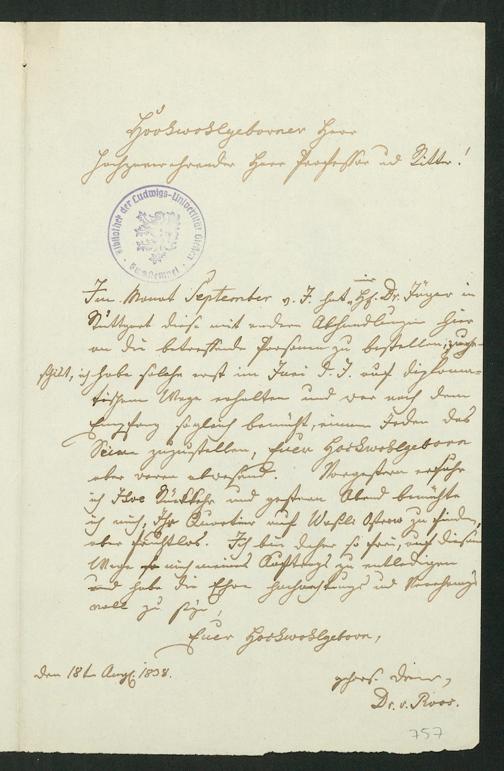 Hochwohlgeborner Herr
Hochzuverehrender Herr Professor und Ritter!
Bibliothek der Ludwigs-Universität Giessen
Im Monat September v. J. hat H. Dr. Jäger in
Stuttgart diese mit andern Abhandlungen hier
an die betreffende Personen zu bestellen, zuge-
schickt, ich habe solche erst im Juni d. J. auf diploma-
tischem Wege erhalten und war nach dem
Empfang sogleich bemüht, einem Jeden das
Seine zuzustellen, Euer Hochwohlgeborn
aber waren abwesend. Vorgestern erfuhr
ich Ihre Rückkehr und gestern Abend bemühte
ich mich, Ihr Quartier auf Wasili Ostrow zu finden,
aber fruchtlos. Ich bin daher so frei, auf diesem
Wege mich meines Auftrags zu entledigen
und habe die Ehre hochachtungs und Verehrungs
voll zu seyn,
Euer Hochwohlgeborn,
den 18t Aug. 1838.
gehors. Diener,
Dr. v. Roos.
757